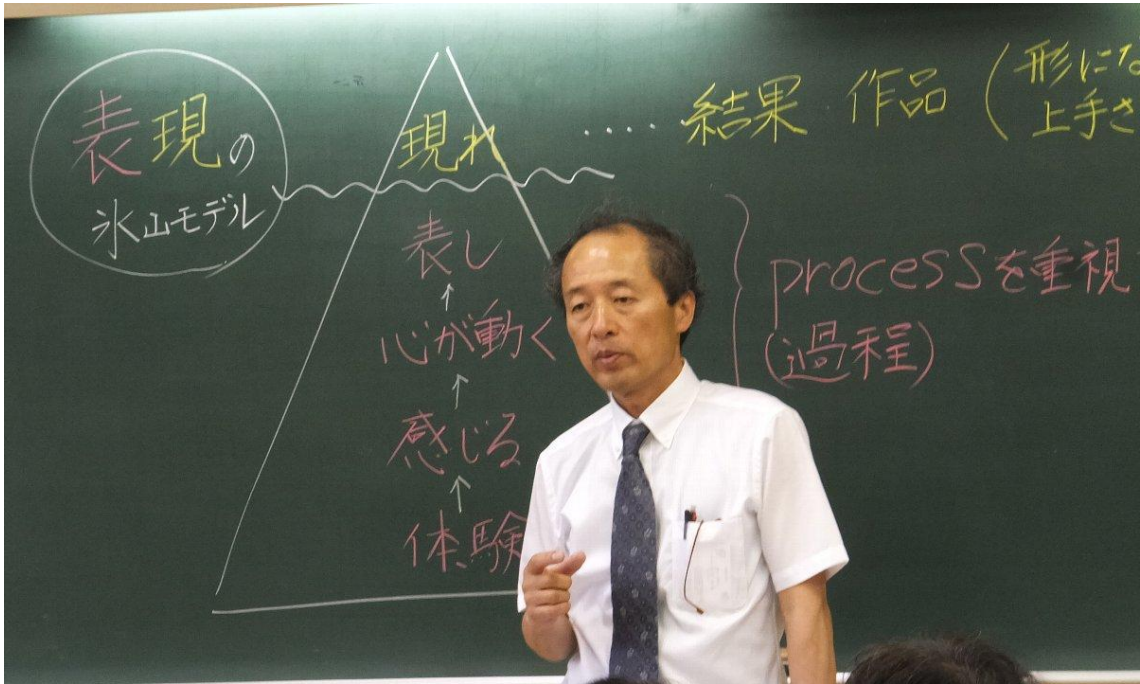 表現の
氷山モデル
現れ
‥‥ 結果 作品 (形にな
上手さ
表し
↑
心が動く
↑
感じる
↑
体験
processを重視
(過程)